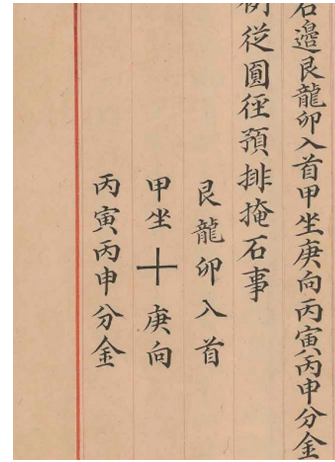 邊艮龍卯入首甲坐庚向丙寅丙申分金
從圓徑預排掩石事
艮龍卯入首
甲坐十庚向
丙寅丙申分金